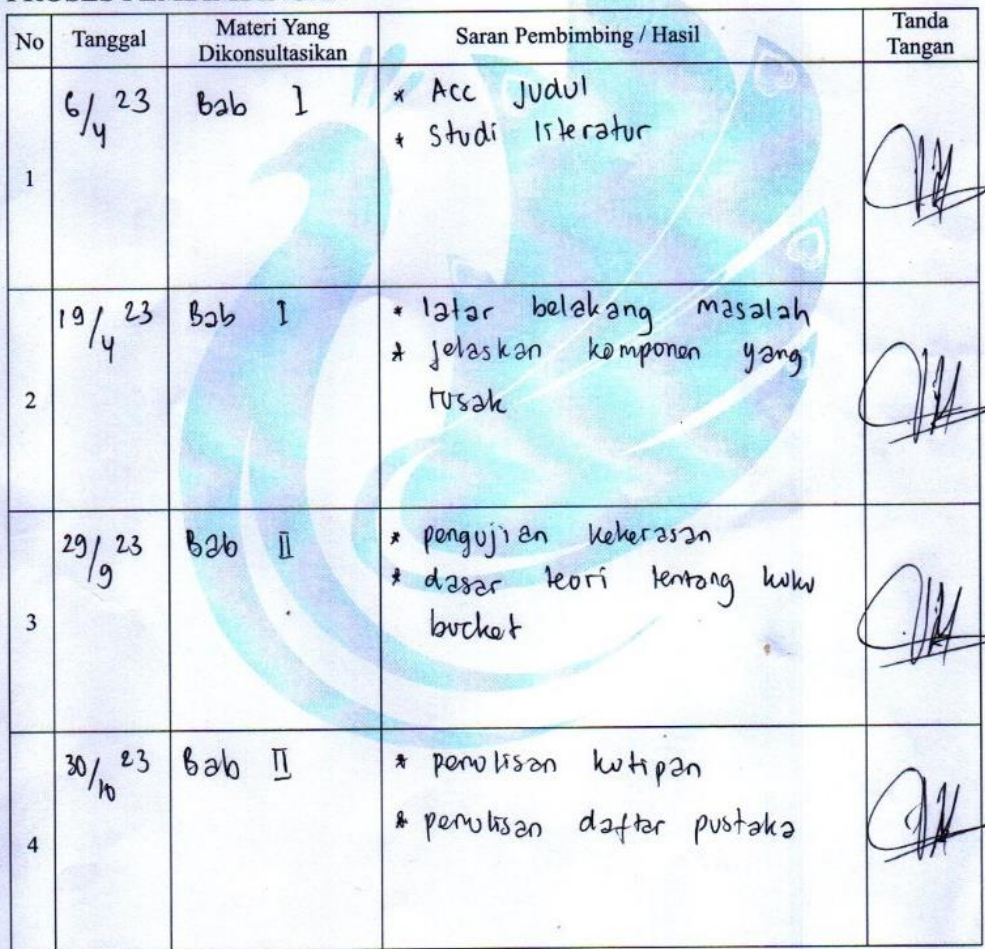 No Tanggal Materi Yang Dikonsultasikan Saran Pembimbing / Hasil Tanda Tangan
1 6/4 23 Bab I * Acc Judul
* Studi literatur
2 19/4 23 Bab I * latar belakang masalah
* jelaskan komponen yang
rusak
3 29/9 23 Bab II * pengujian kekerasan
* dasar teori tentang kuku
bucket
4 30/10 23 Bab II * penulisan kutipan
* penulisan daftar pustaka